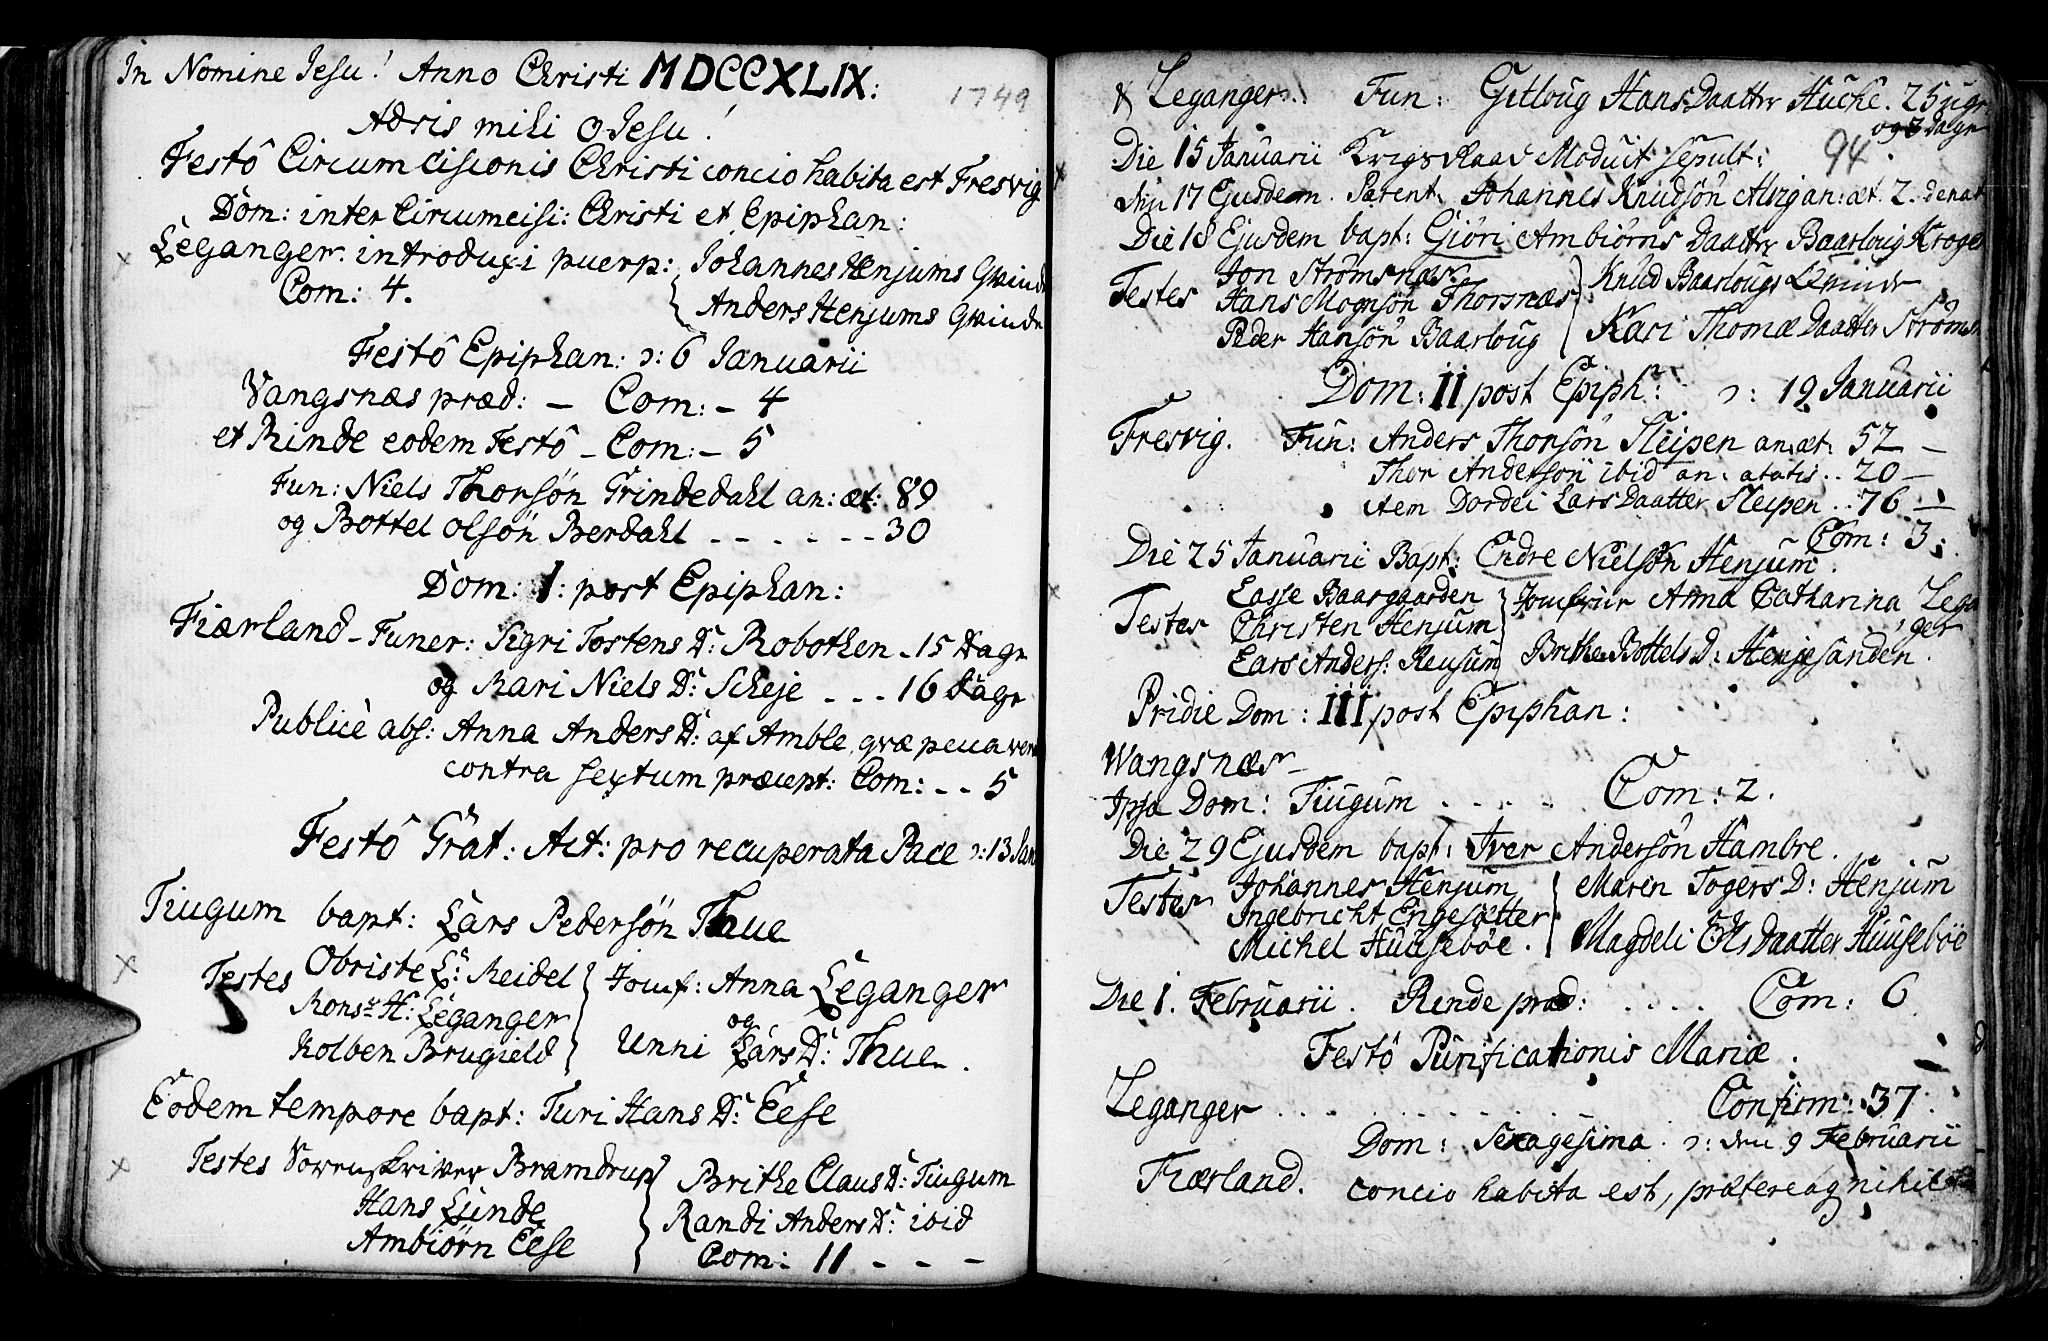 In Nomine Jesu! Anno Christi MDCCXLIX:
1749
Adsis mihi O Jesu!
Festô Circumcisionis Christi concio habita est Fresvig
Dom: inter Circumcisi: Christi et Epiphan:
Leganger. introduxi puerp: Johannes Henjums Qvinde
Com: 4.
Anders Henjums Qvinde
Festô Epiphan: ɔ: 6 Januarii
Vangsnæs præd: – Com: – 4
et Rinde eodem Festô – Com: – 5
Fun: Niels Thorsön Grindedahl an: æt: 89
og Bottel Olsön Berdahl - - - - - - 30
Dom: I: post Epiphan:
Fiærland – Funer: Sigri Tostens D: Robothen - 15 Dage
og Kari Niels D: Scheje - - - 16 Dage
Publicè abs: Anna Anders D: af Amble, qvæ
contra sextum præcept: Com: - - 5
Festô Grat: Act: pro recuperata Pace ɔ: 13 Jan
Tiugum bapt: Lars Pedersön Thue
Testes Obriste L: Reidel
Mons: H: Leganger
Kolben Brugield
Jomf: Anna Leganger
og
Unni Lars D: Thue.
Eodem tempore bapt: Turi Hans D: Eese
Testes Sorenskriver Bramdrup
Hans Lunde
Ambiörn Eese
Brithe Claus D: Tiugum
Randi Anders D: ibid
Com: 11 - - -
Leganger. Fun: Hans Daatter Huche. 25 uger
og 3 Dage
94
Die 15 Januarii Krigsraad Moduit sepult:
den 17 Ejusdem. Parent. Johannes Knudsön an: æt. 2. denat
Die 18 Ejusdem bapt: Giöri Ambiörns Daatter Baarloug Kroge
Testes Jon Strömsnæs
Hans Mognsön Thorsnæs
Peder Hansön Baarloug
Knud Baarlougs Qvinde
Kari Thomæ Daatter Strömsn
Dom: II post Epiph: ɔ: 19 Januarii
Fresvig. Fun: Anders Thorsön Sleipen an: æt: 52 –
Thor Andersön ibid an: ætatis . . 20 –
item Dordei Lars Daatter Sleipen . . 76 –
Com: 3.
Die 25 Januarii Bapt: Endre Nielsön Henjum.
Testes Lasse Baargaarden
Christen Henjum
Lars Anders: Reusum
Jomfrue Anna Catharina Lega
ger
Brithe Bottels D: Henjesanden.
Pridie Dom: III post Epiphan:
Wangsnæs –
Ipsa Dom: Tiugum . . . . . Com: 2.
Die 29 Ejusdem bapt: Iver Andersön Hambre.
Testes Johannes Henjum
Ingebricht Engesætter
Michel Huuseböe.
Maren Togers D: Henjum
Magdeli Ols Daatter Huuseböe
Die 1. Februarii. Rinde præd: . . . . Com: 6
Festô Purificationis Mariæ.
Leganger . . . . . . . . . . Confirm: 37.
Dom: Sexagesima. ɔ: den 9 Februarii
Fiærland. concio habita est, prætereaq nihil